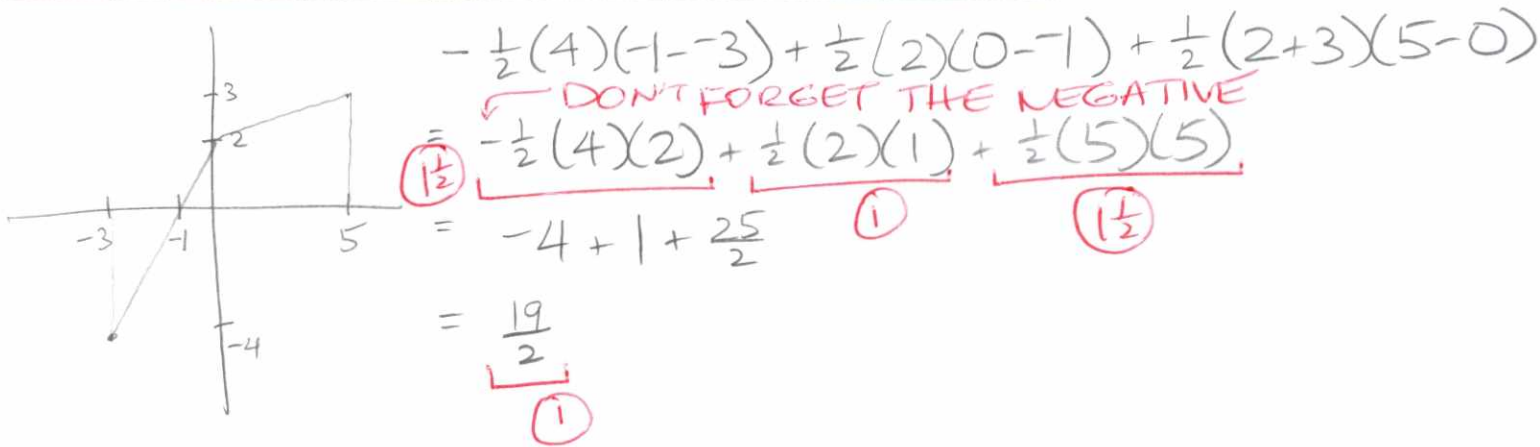 -½(4)(-1--3)+½(2)(0--1)+½(2+3)(5-0)
DON'T FORGET THE NEGATIVE
= -½(4)(2)+½(2)(1)+½(5)(5)
1½ 1 1½
= -4+1+25/2
= 19/2
1
3
2
-3 -1 5
-4